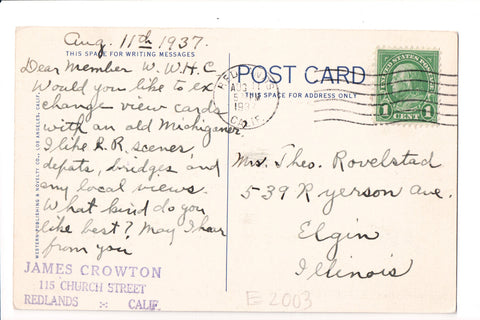 Aug. 11th 1937.
THIS SPACE FOR WRITING MESSAGES
Dear Member W. W. H. C.
Would you like to ex
change view cards
with an old Michiganer
I like R. R. scenes,
depots, bridges and
any local views.
What kind do you
like best? May I hear
from you
JAMES CROWTON
115 CHURCH STREET
REDLANDS CALIF.
WESTERN PUBLISHING & NOVELTY CO., LOS ANGELES, CALIF.
AUG 11
1937
CALIF.
POST CARD
THIS SPACE FOR ADDRESS ONLY
UNITED STATES POSTAGE
1 1
CENT
Mrs. Theo. Rovelstad
539 Ryerson Ave.
Elgin
Illinois
E2003